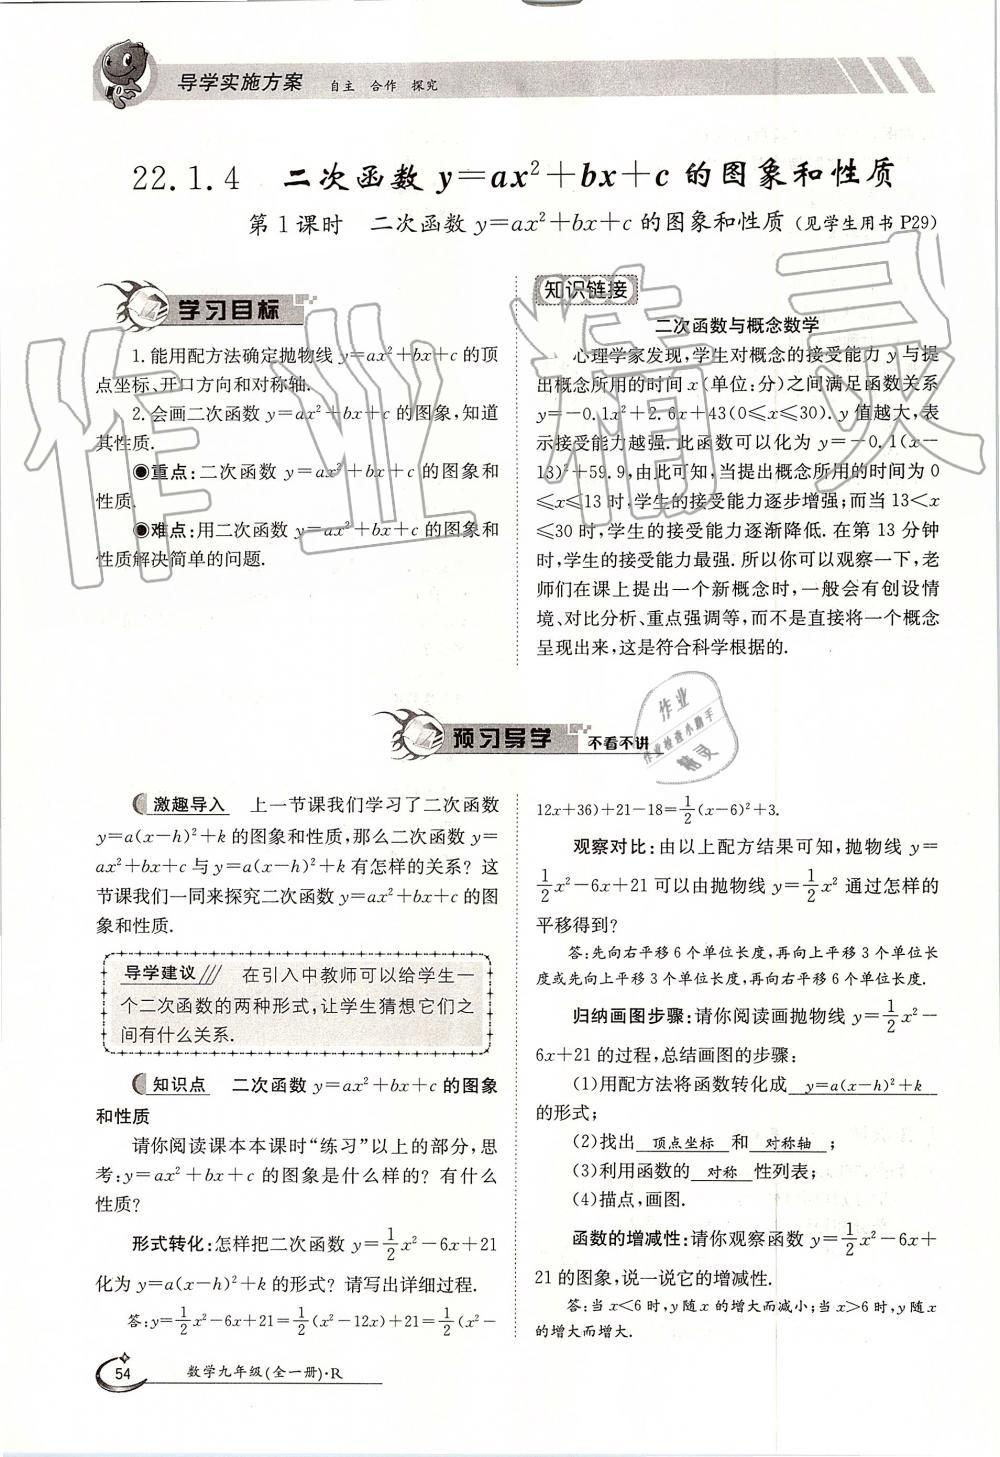 导学实施方案 自主 合作 探究
22.1.4 二次函数 y=ax²+bx+c 的图象和性质
第1课时 二次函数 y=ax²+bx+c 的图象和性质(见学生用书 P29)
学习目标
1.能用配方法确定抛物线 y=ax²+bx+c 的顶
点坐标、开口方向和对称轴.
2.会画二次函数 y=ax²+bx+c 的图象,知道
其性质.
◉重点:二次函数 y=ax²+bx+c 的图象和
性质.
◉难点:用二次函数 y=ax²+bx+c 的图象和
性质解决简单的问题.
知识链接
二次函数与概念数学
心理学家发现,学生对概念的接受能力 y 与提
出概念所用的时间 x(单位:分)之间满足函数关系
y=-0.1x²+2.6x+43(0≤x≤30).y 值越大,表
示接受能力越强.此函数可以化为 y=-0.1(x-
13)²+59.9,由此可知,当提出概念所用的时间为 0
≤x≤13 时,学生的接受能力逐步增强;而当 13<x
≤30 时,学生的接受能力逐渐降低.在第 13 分钟
时,学生的接受能力最强.所以你可以观察一下,老
师们在课上提出一个新概念时,一般会有创设情
境、对比分析、重点强调等,而不是直接将一个概念
呈现出来,这是符合科学根据的.
预习导学 不看不讲
激趣导入 上一节课我们学习了二次函数
y=a(x-h)²+k 的图象和性质,那么二次函数 y=
ax²+bx+c 与 y=a(x-h)²+k 有怎样的关系?这
节课我们一同来探究二次函数 y=ax²+bx+c 的图
象和性质.
导学建议 在引入中教师可以给学生一
个二次函数的两种形式,让学生猜想它们之
间有什么关系.
知识点 二次函数 y=ax²+bx+c 的图象
和性质
请你阅读课本本课时“练习”以上的部分,思
考:y=ax²+bx+c 的图象是什么样的?有什么
性质?
形式转化:怎样把二次函数 y=1/2x²-6x+21
化为 y=a(x-h)²+k 的形式?请写出详细过程.
答:y=1/2x²-6x+21=1/2(x²-12x)+21=1/2(x²-
12x+36)+21-18=1/2(x-6)²+3.
观察对比:由以上配方结果可知,抛物线 y=
1/2x²-6x+21 可以由抛物线 y=1/2x² 通过怎样的
平移得到?
答:先向右平移 6 个单位长度,再向上平移 3 个单位长
度或先向上平移 3 个单位长度,再向右平移 6 个单位长度.
归纳画图步骤:请你阅读画抛物线 y=1/2x²-
6x+21 的过程,总结画图的步骤:
(1)用配方法将函数转化成 y=a(x-h)²+k
的形式;
(2)找出 顶点坐标 和 对称轴 ;
(3)利用函数的 对称 性列表;
(4)描点,画图.
函数的增减性:请你观察函数 y=1/2x²-6x+
21 的图象,说一说它的增减性.
答:当 x<6 时,y 随 x 的增大而减小;当 x>6 时,y 随 x
的增大而增大.
54 数学九年级(全一册)·R
作业精灵
作业
作业检查小助手
精灵